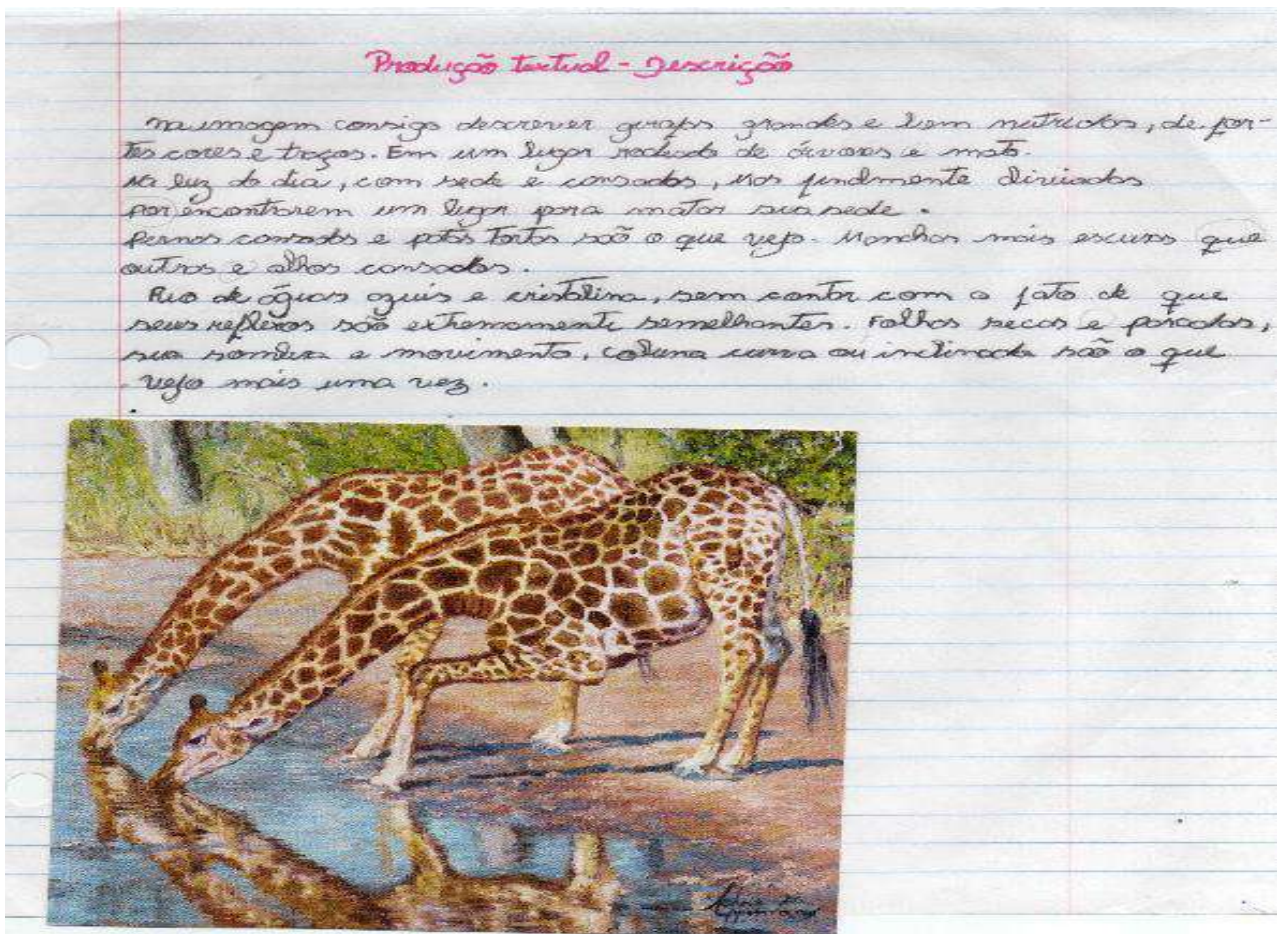 Produção textual - Descrição
Na imagem consigo descrever girafas grandes e bem nutridas, de for-
tes cores e traços. Em um lugar rodeado de árvores e mato.
Na luz do dia, com sede e cansadas, mas finalmente aliviadas
por encontrarem um lugar para matar sua sede.
Pernas cansadas e patas tortas são o que vejo. Manchas mais escuras que
outras e olhos cansados.
Rio de águas azuis e cristalina, sem contar com o fato de que
seus reflexos são extremamente semelhantes. Folhas secas e
sua sombra e movimento, coluna curva ou inclinada são o que
vejo mais uma vez.